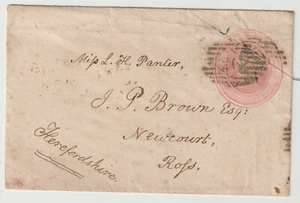 Miss L. H. Panter,
J. P. Brown Esq:
Newcourt,
Ross.
Herefordshire.